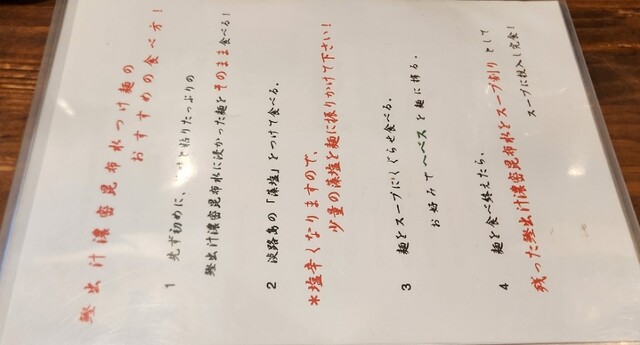 鰹出汁濃密昆布水つけ麺の
おすすめの食べ方！
1 先ず初めに、 と粘りたっぷりの
鰹出汁濃密昆布水に浸かった麺をそのまま食べる！
2 淡路島の「藻塩」をつけて食べる。
＊塩辛くなりますので、
少量の藻塩を麺に振りかけて下さい！
3 麺をスープにくぐらせ食べる。
お好みでヘベスを麺に搾る。
4 麺を食べ終えたら、
残った鰹出汁濃密昆布水をスープ割りとして
スープに投入し完食！